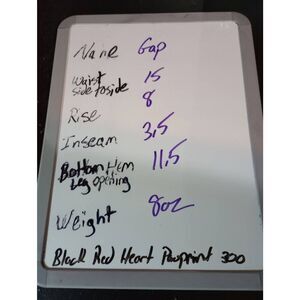 Name Gap
Waist side to side 15
Rise 8
Inseam 3,5
Bottom Hem Leg opening 11,5
Weight 8oz
Black Red Heart Pawprint 300